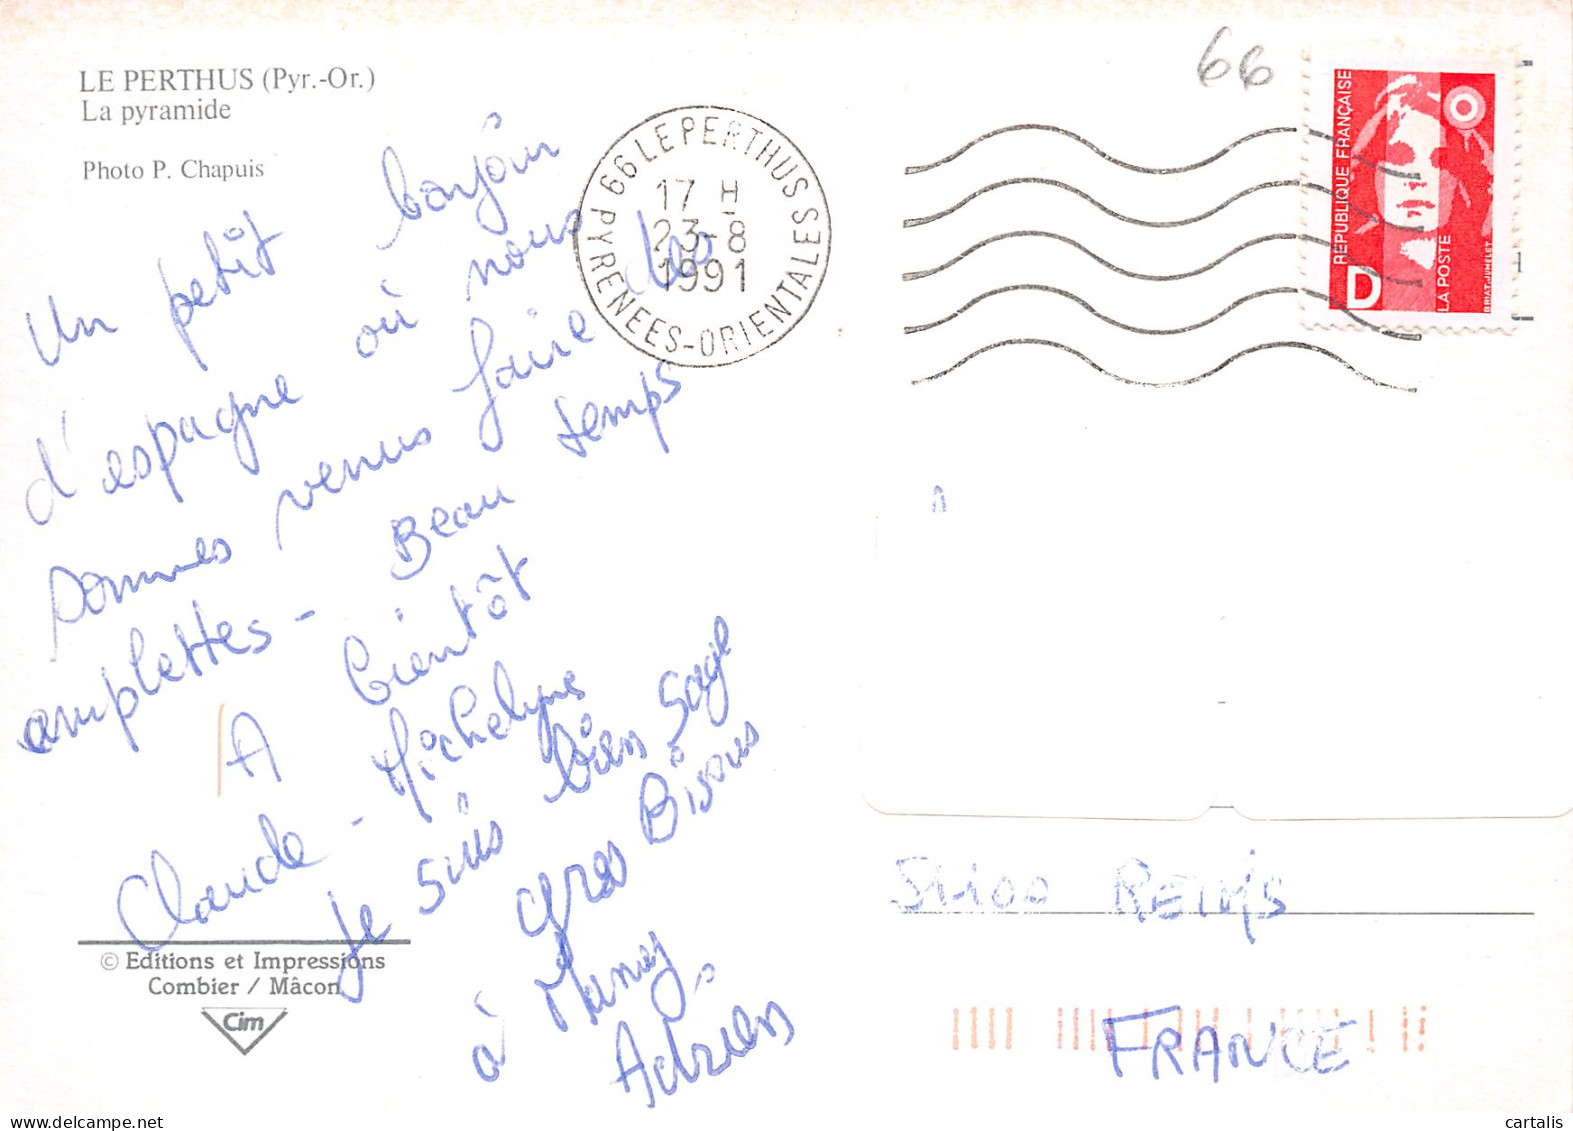 LE PERTHUS (Pyr.-Or.)
La pyramide
Photo P. Chapuis
66
66 LE PERTHUS
17 H
23-8
1991
PYRENEES-ORIENTALES
REPUBLIQUE FRANÇAISE
LA POSTE
D
BRIAT-JUMELET
Un petit bonjour
d'espagne où nous
sommes venus faire des
amplettes - Beau temps
A bientôt
Claude - Michelyne
Je suis bien sage
gros Bisous
à Mamy
Adrien
51100 REIMS
FRANCE
© Editions et Impressions
Combier / Mâcon
Cim
cartalis